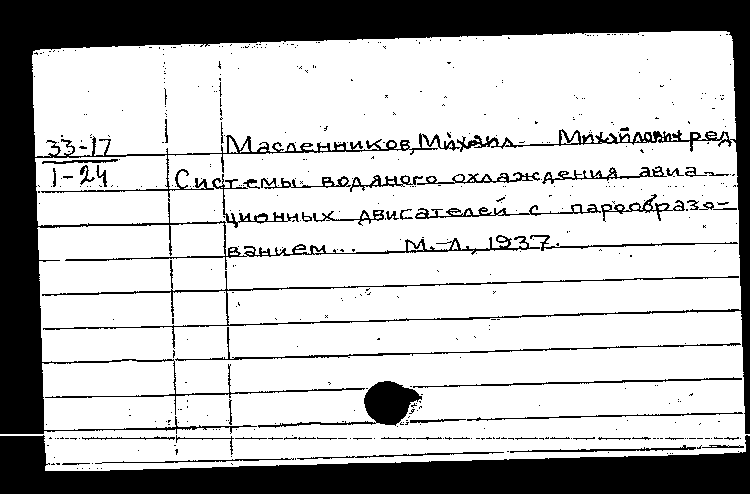 33-17 Масленников, Михаил Михайлович ред.
1-24 Системы водяного охлаждения авиа-
ционных двигателей с парообразо-
ванием... М.-Л., 1937.